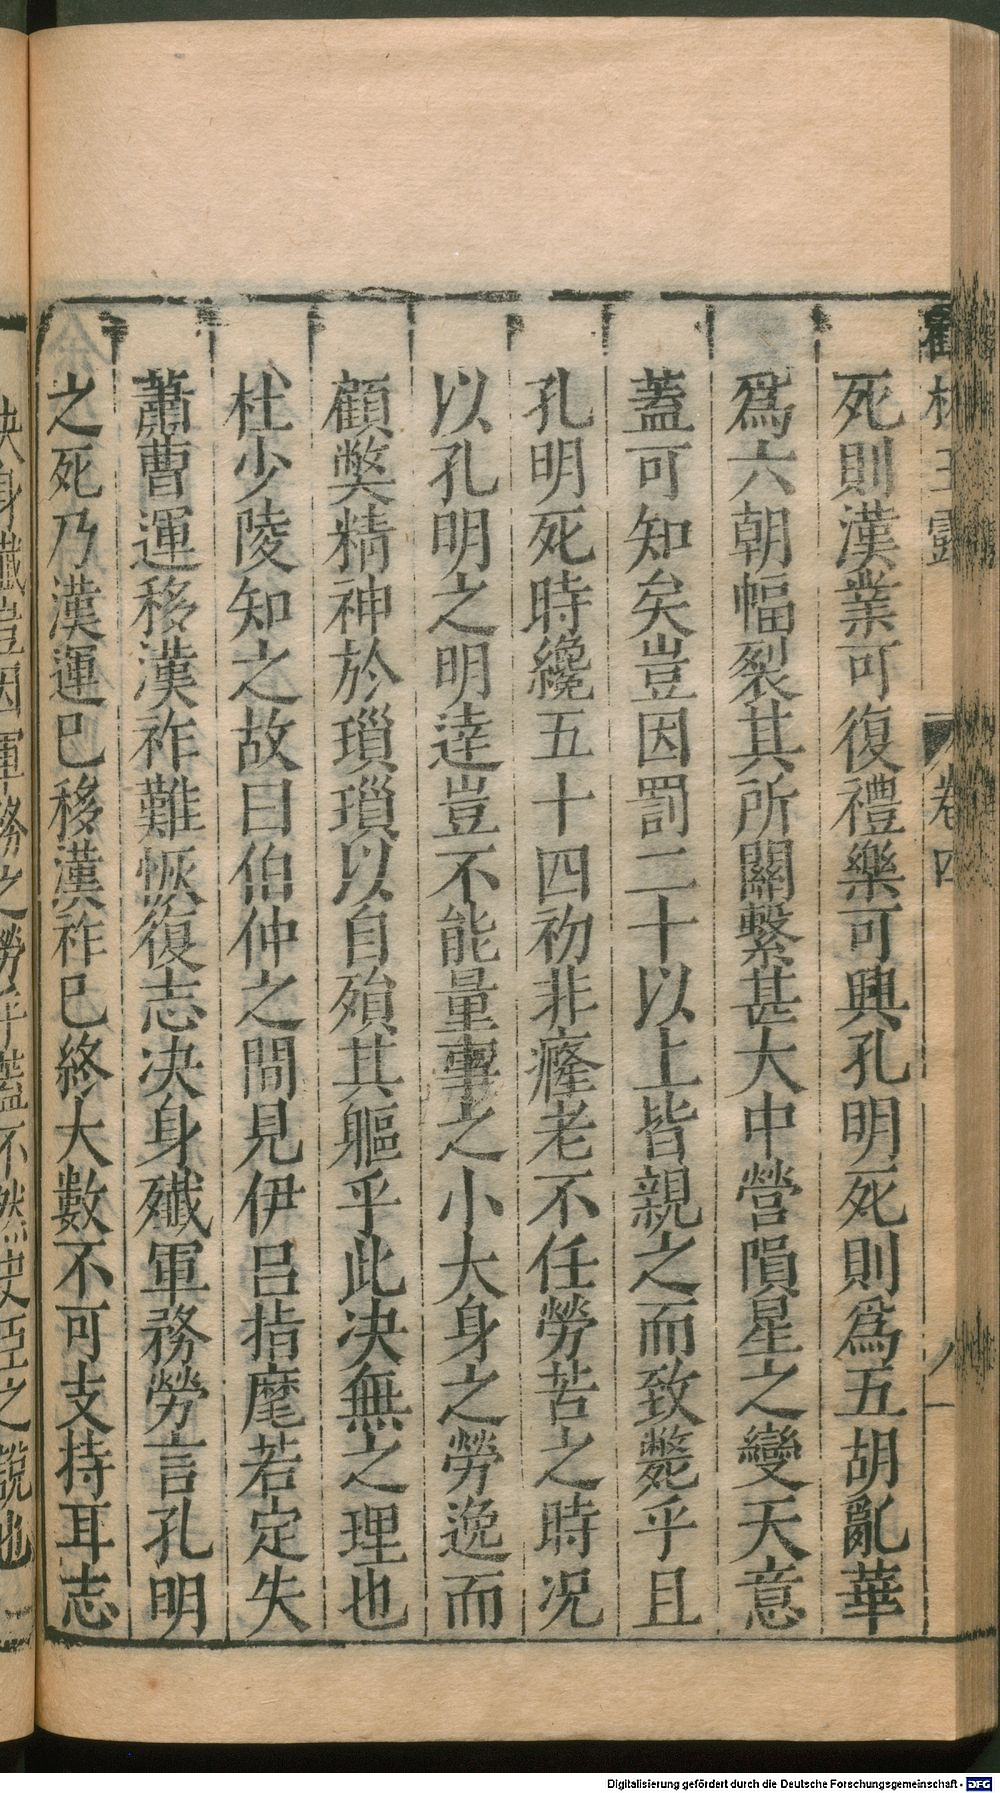 死則漢業可復禮樂可興孔明死則爲五胡亂華
爲六朝幅裂其所關繫甚大中營隕星之變天意
蓋可知矣豈因罰二十以上皆親之而致斃乎且
孔明死時纔五十四初非癃老不任勞苦之時况
以孔明之明逹豈不能量事之小大身之勞逸而
顧獘精神於瑣瑣以自殞其軀乎此决無之理也
杜少陵知之故曰伯仲之間見伊呂指麾若定失
蕭曹運移漢祚難恢復志决身殲軍務勞言孔明
之死乃漢運已移漢祚已終大數不可支持耳志
决身殲豈因軍務之勞乎蓋不然史臣之說也
卷四
Digitalisierung gefördert durch die Deutsche Forschungsgemeinschaft - DFG